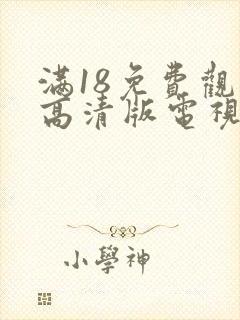 滿18免費觀
高清版電視
小學神